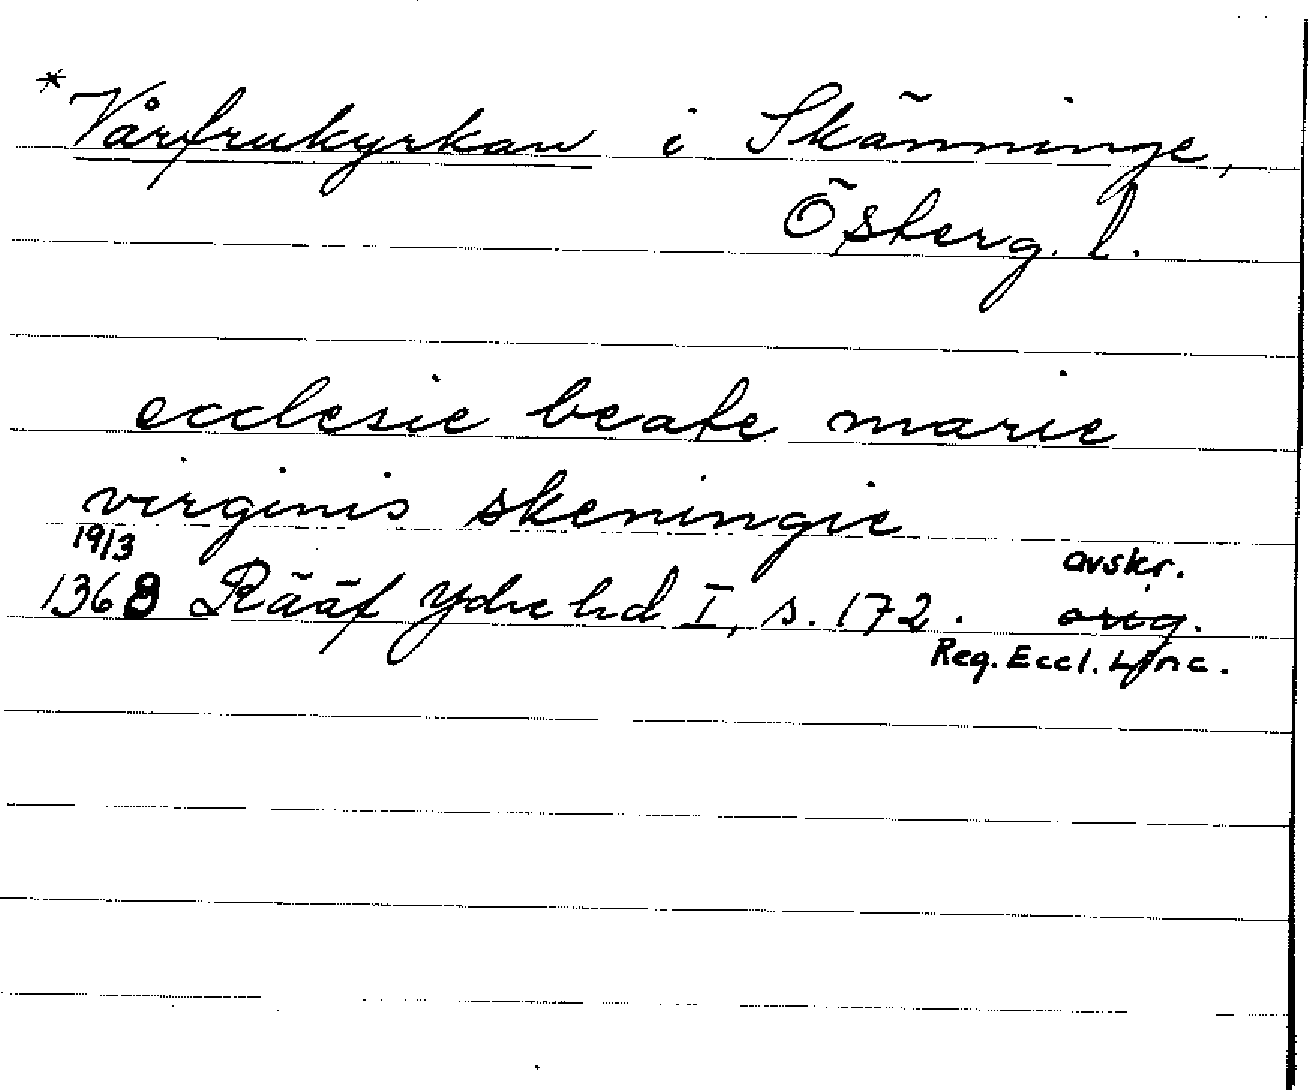 *Vårfrukyrkan i Skänninge,
Österg. l.
ecclesie beate marie
virginis skeningie
19/3
avskr.
1368 Rääf Ydre hd I, s. 172. orig.
Reg. Eccl. Linc.